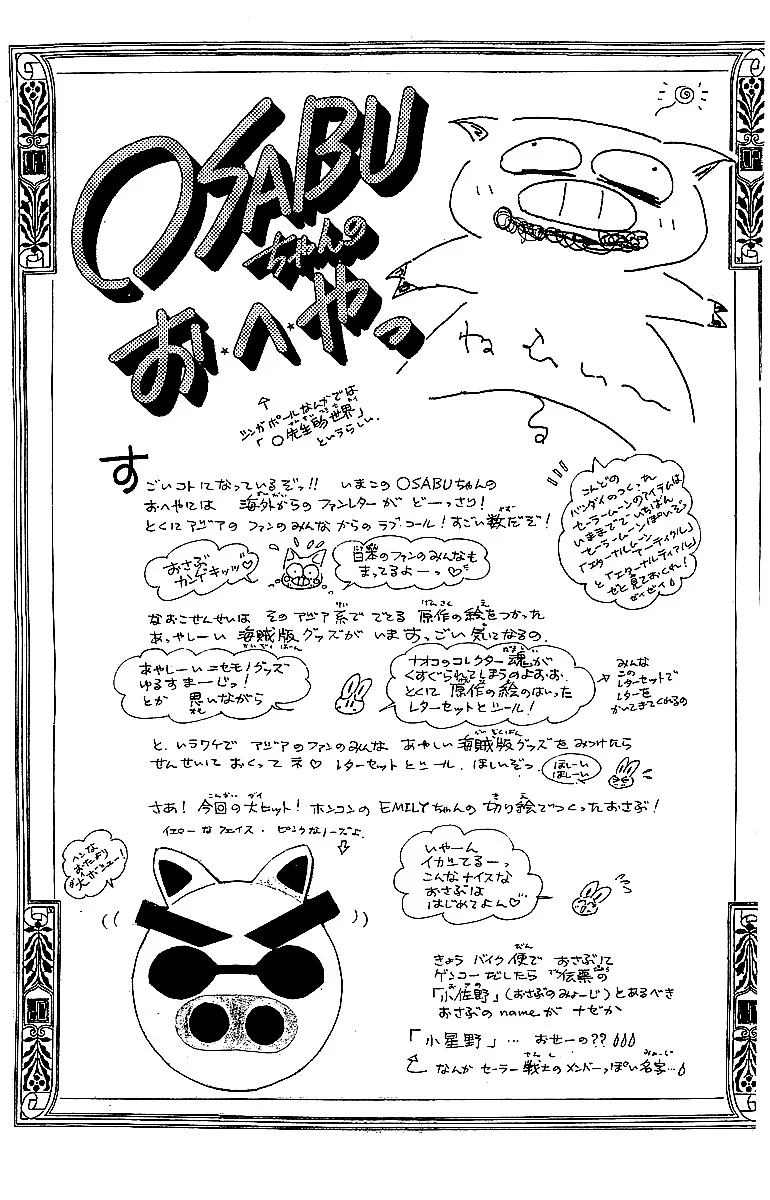 OSABU
ちゃんの
お・へ・やっ
ねむいー
シンガポールなんかでは
「〇先生的世界」
というらしい.
すごいコトになっているぞっ!! いまこの OSABUちゃんの
おへやには 海外からの ファンレターが どーっさり!
とくに アジアの ファンのみんな からの ラブコール! すごい 数だぞ!
こんどの
バンダイのつくった
セーラームーンのアイテムは
いままでで いちばん
セーラームーンぽいぞ
「エターナルムーン
アーティクル」
と「エターナルティアル」
ぜヒ 見ておくれ!
ゼイゼイ
おさぶ
カンゲキッッ♡
日本のファンのみんなも
まってるよーっ♡
なおこせんせいは その アジア 系で でてる 原作の 絵をつかった
あっやしーい 海賊版 グッズが いま すっごい 気になるの.
あやしーい ニセモノグッズ
ゆるすまーじっ!
とか 思いながら
ナオコのコレクター 魂が
くすぐられてしまうのよおお.
とくに 原作の絵のはいった
レターセットとシール!
みんな
この
レターセットで
レターを
かいてきてくれるの
と, いうワケで アジアのファンのみんな あやしい 海賊版グッズを みつけたら
せんせいに おくって ネ♡ レターセットとシール. ほしいぞっ
ほしーい
ほしーい
さあ! 今回の 大ヒット! ホンコンの EMILYちゃんの 切り絵でつくったおさぶ!
イエローなフェイス・ピンクなノーズよ
ヘンな
おたより
大ボシュー!
いやーん
イカすてるーっ
こんなナイスな
おさぶは
はじめてよん♡
きょう バイク 便で おさぶに
ゲンコー だしたら 伝票の
「小佐野」(おさぶのみょーじ)とあるべき
おさぶの nameが ナゼか
「小星野」… おせーの??
なんか セーラー 戦士の メンバーっぽい 名字…